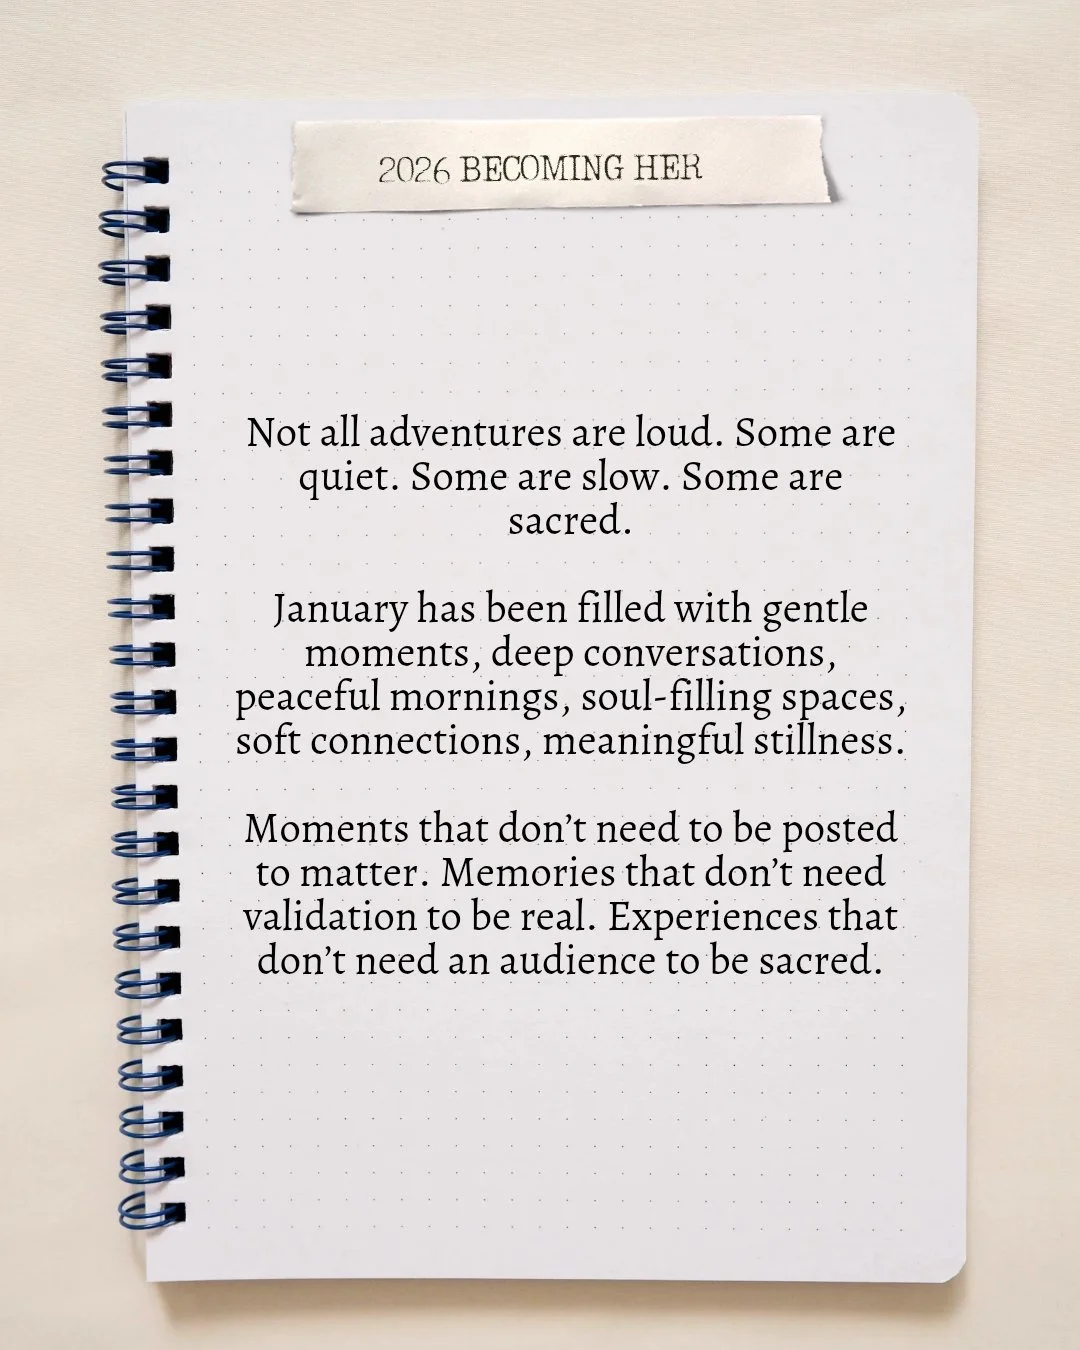 2026 BECOMING HER
Not all adventures are loud. Some are
quiet. Some are slow. Some are
sacred.
January has been filled with gentle
moments, deep conversations,
peaceful mornings, soul-filling spaces,
soft connections, meaningful stillness.
Moments that don’t need to be posted
to matter. Memories that don’t need
validation to be real. Experiences that
don’t need an audience to be sacred.